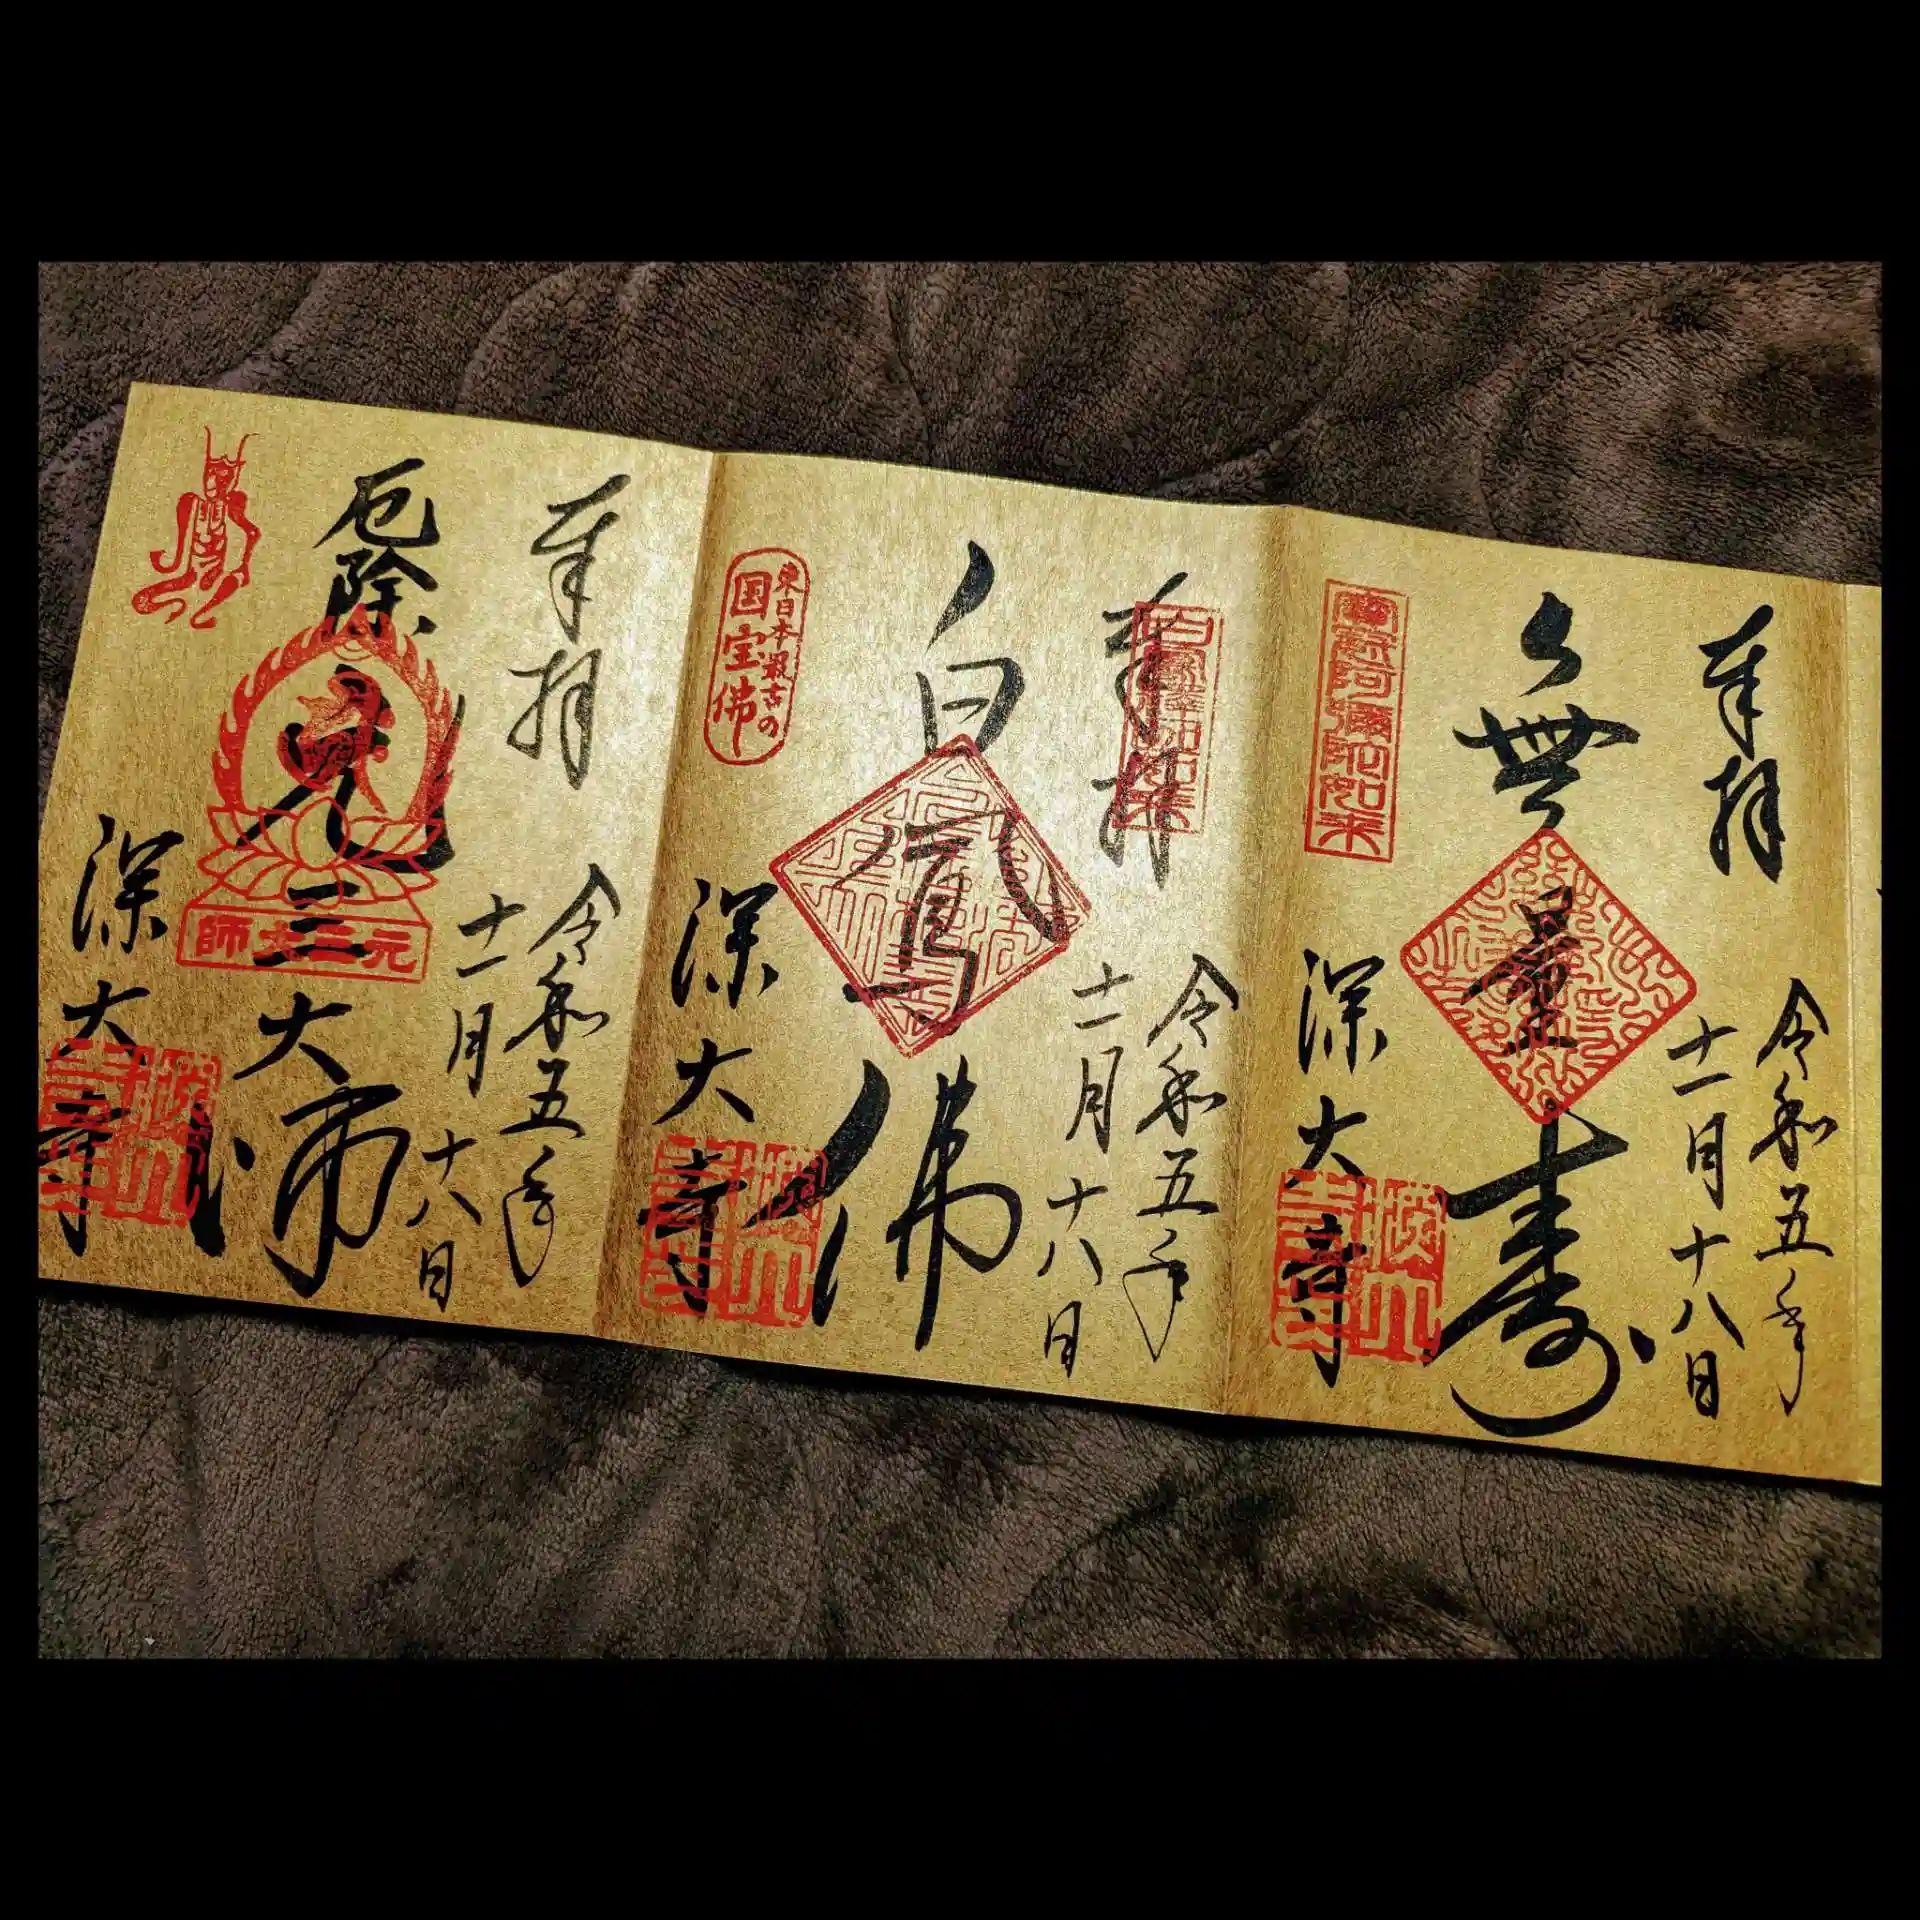 奉拝
令和五年
十一月十八日
無量寿
寶冠阿彌陀如来
深大寺
奉拝
令和五年
十一月十八日
白鳳佛
東日本最古の
国宝佛
深大寺
奉拝
令和五年
十一月十八日
厄除
元三大師
元三大師
深大寺